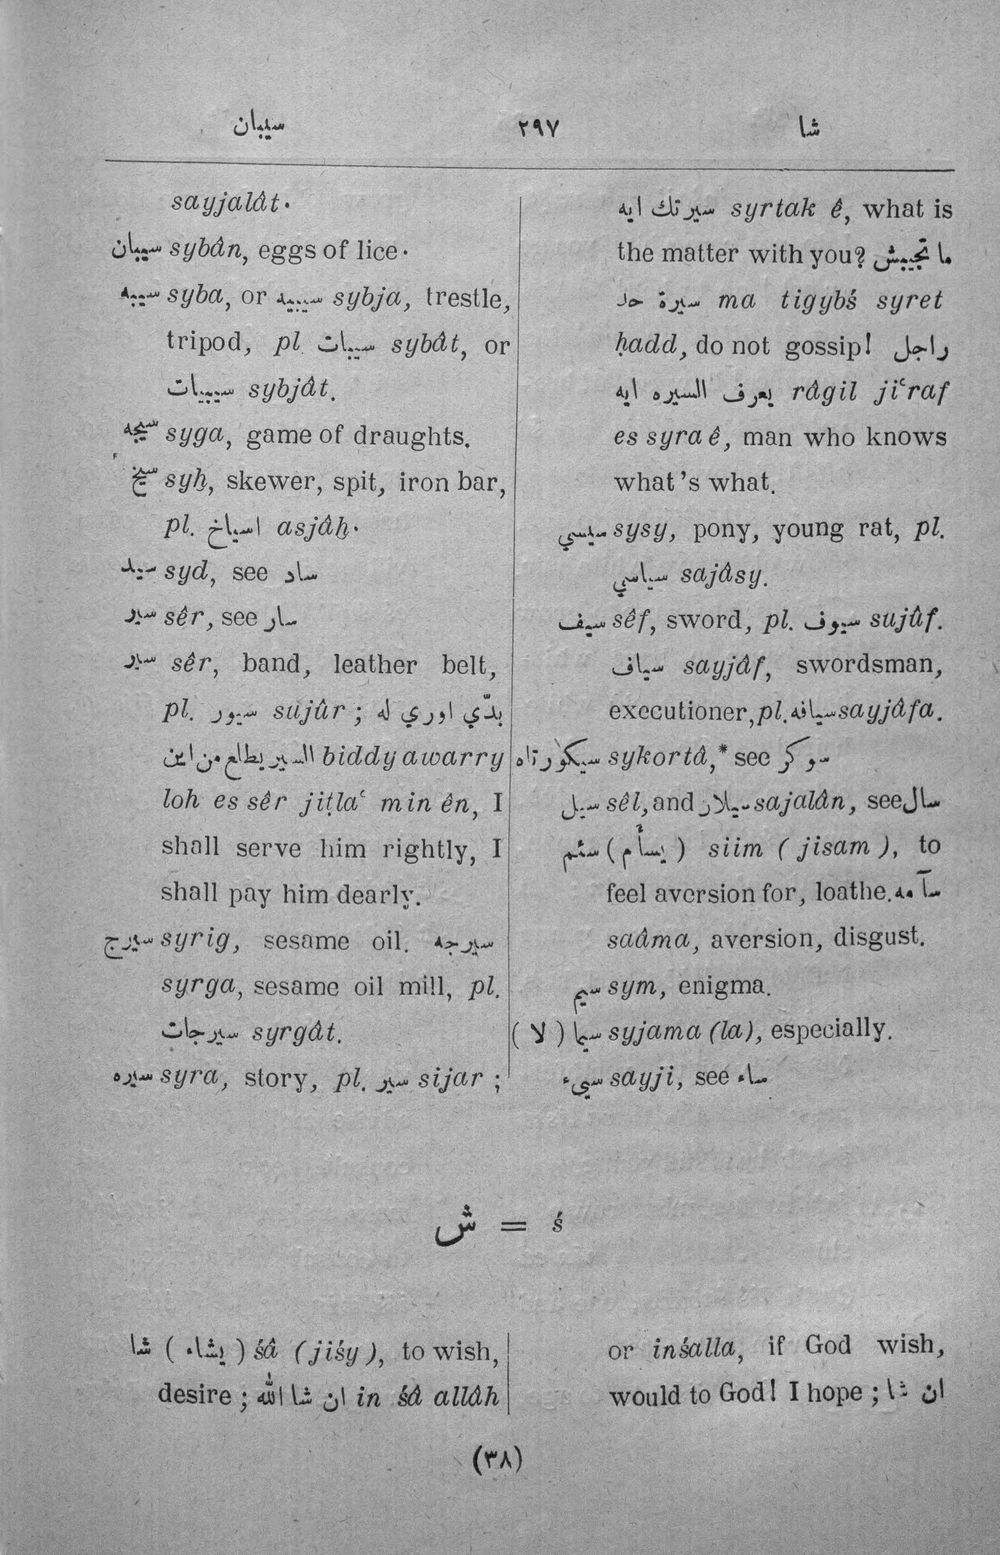 سيبان ٢٩٧ شا
sayjalât.
سيبان sybân, eggs of lice.
سيبه syba, or سيبيه sybja, trestle,
tripod, pl. سيبات sybât, or
سيبيات sybjât.
سيجه syga, game of draughts.
سيخ syẖ, skewer, spit, iron bar,
pl. اسياخ asjâẖ.
سيد syd, see ساد
سير sêr, see سار
سير sêr, band, leather belt,
pl. سيور sujûr ; بدّي اوري له
السير يطلع من اين biddy awarry
loh es sêr jiṭlaʿ min ên, I
shall serve him rightly, I
shall pay him dearly.
سيرج syrig, sesame oil. سيرجه
syrga, sesame oil mill, pl.
سيرجات syrgât.
سيره syra, story, pl. سير sijar ;
سيرتك ايه syrtak ê, what is
the matter with you? ما تجيبش
سيرة حد ma tigybś syret
ḥadd, do not gossip! راجل
يعرف السيره ايه râgil jiʿraf
es syra ê, man who knows
what's what.
سيسي sysy, pony, young rat, pl.
سياسي sajâsy.
سيف sêf, sword, pl. سيوف sujûf.
سياف sayjâf, swordsman,
executioner, pl. سيافه sayjâfa.
سيكورتاه sykortâ,* see سوكر
سيل sêl, and سيلان sajalân, see سال
سئم (يسأم) siim (jisam), to
feel aversion for, loathe. سآمه
saâma, aversion, disgust.
سيم sym, enigma.
سيما (لا) syjama (la), especially.
سيىء sayji, see ساء
ش = ś
شا (يشاء) śâ (jiśy), to wish,
desire ; ان شا الله in śâ allâh
or inśalla, if God wish,
would to God! I hope ; ان شا
(٣٨)